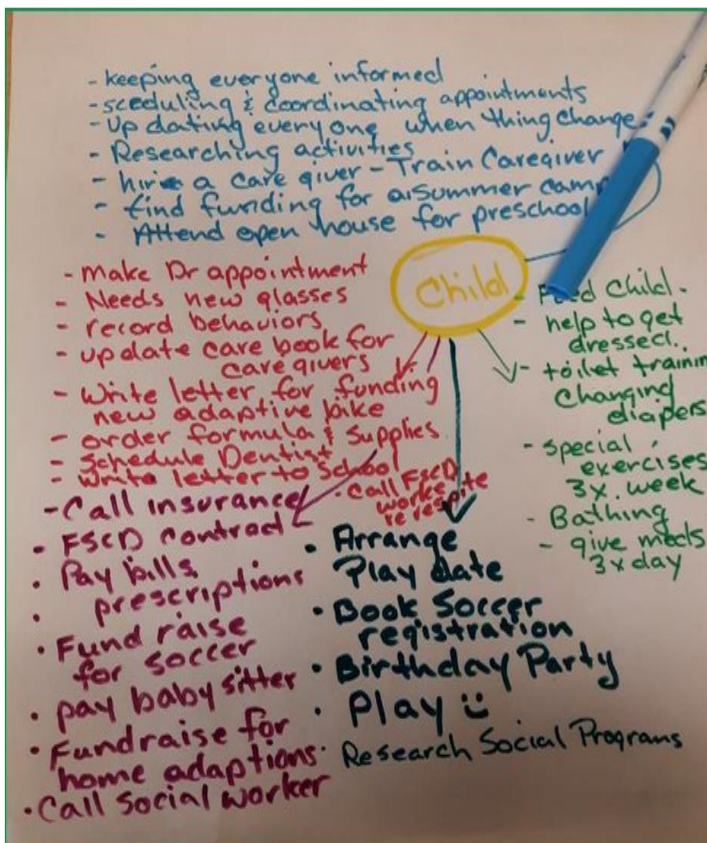 - keeping everyone informed
- sceduling & coordinating appointments
- Up dating everyone when thing change
- Researching activities
- hire a care giver - Train Caregiver
- find funding for a summer camp
- Attend open house for preschool
Child
- Make Dr appointment
- Needs new glasses
- record behaviors
- update care book for
care givers
- Write letter for funding
new adaptive bike
- order formula & Supplies
- Schedule Dentist
- Write letter to School
· Call FSCD
worker
re respite
- Feed child -
- help to get
dressed.
- toilet training
Changing
diapers
- special
exercises
3x week
- Bathing
- give meds
3x day
- Call insurance
· FSCD contract
· Pay bills
· prescriptions
· Fund raise
for soccer
· pay baby sitter
· Fundraise for
home adaptions
· Call Social worker
· Arrange
Play date
· Book Soccer
registration
· Birthday Party
· Play ü
· Research Social Programs